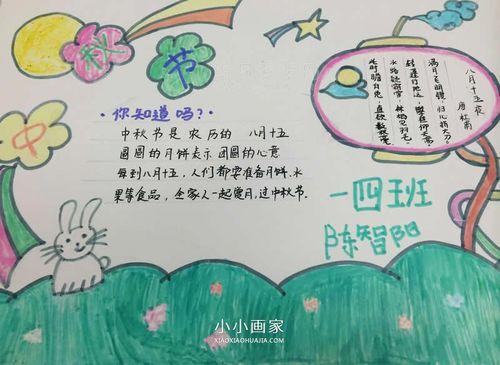 中
秋
节
你知道吗？
中秋节是农历的 八月十五
圆圆的月饼表示团圆的心意
每到八月十五，人们都要准备月饼、水
果等食品，全家人一起赏月，过中秋节。
八月十五夜
唐 杜甫
满月飞明镜，归心折大刀。
转蓬行地远，攀桂仰天高。
水路疑霜雪，林栖见羽毛。
此时瞻白兔，直欲数秋毫。
一四班
陈智阳
小小画家
XIAOXIAOHUAJIA.COM